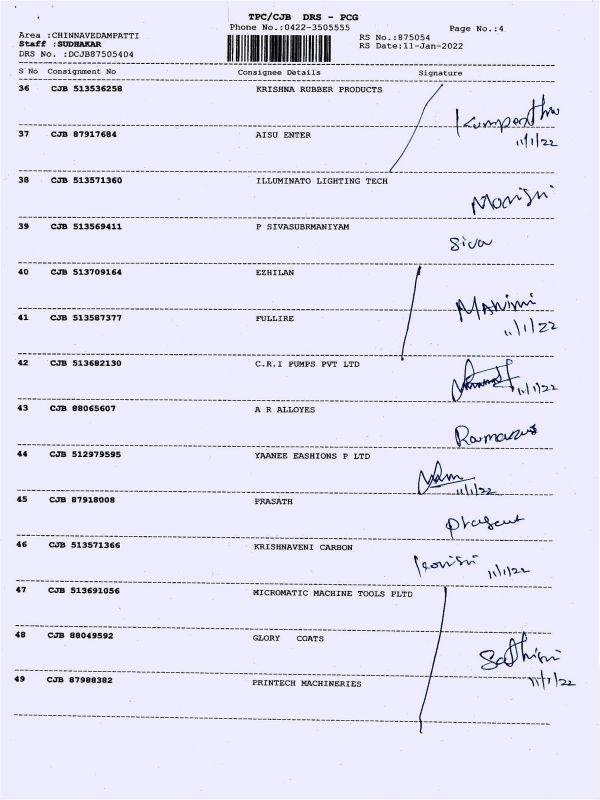 TPC/CJB DRS - PCG
Phone No.:0422-3505555
Page No.:4
Area :CHINNAVEDAMPATTI
RS No.:875054
Staff :SUDHAKAR
RS Date:11-Jan-2022
DRS No. :DCJB87505404
S No Consignment No Consignee Details Signature
36 CJB 513536258 KRISHNA RUBBER PRODUCTS
11/1/22
37 CJB 87917684 AISU ENTER
38 CJB 513571360 ILLUMINATO LIGHTING TECH
39 CJB 513569411 P SIVASUBRMANIYAM
Siva
40 CJB 513709164 EZHILAN
11/1/22
41 CJB 513587377 FULLIRE
42 CJB 513682130 C.R.I PUMPS PVT LTD
11/1/22
43 CJB 88065607 A R ALLOYES
44 CJB 512979595 YAANEE EASHIONS P LTD
11/1/22
45 CJB 87918008 PRASATH
46 CJB 513571366 KRISHNAVENI CARBON
11/1/22
47 CJB 513691056 MICROMATIC MACHINE TOOLS PLTD
48 CJB 88049592 GLORY COATS
11/1/22
49 CJB 87988382 PRINTECH MACHINERIES